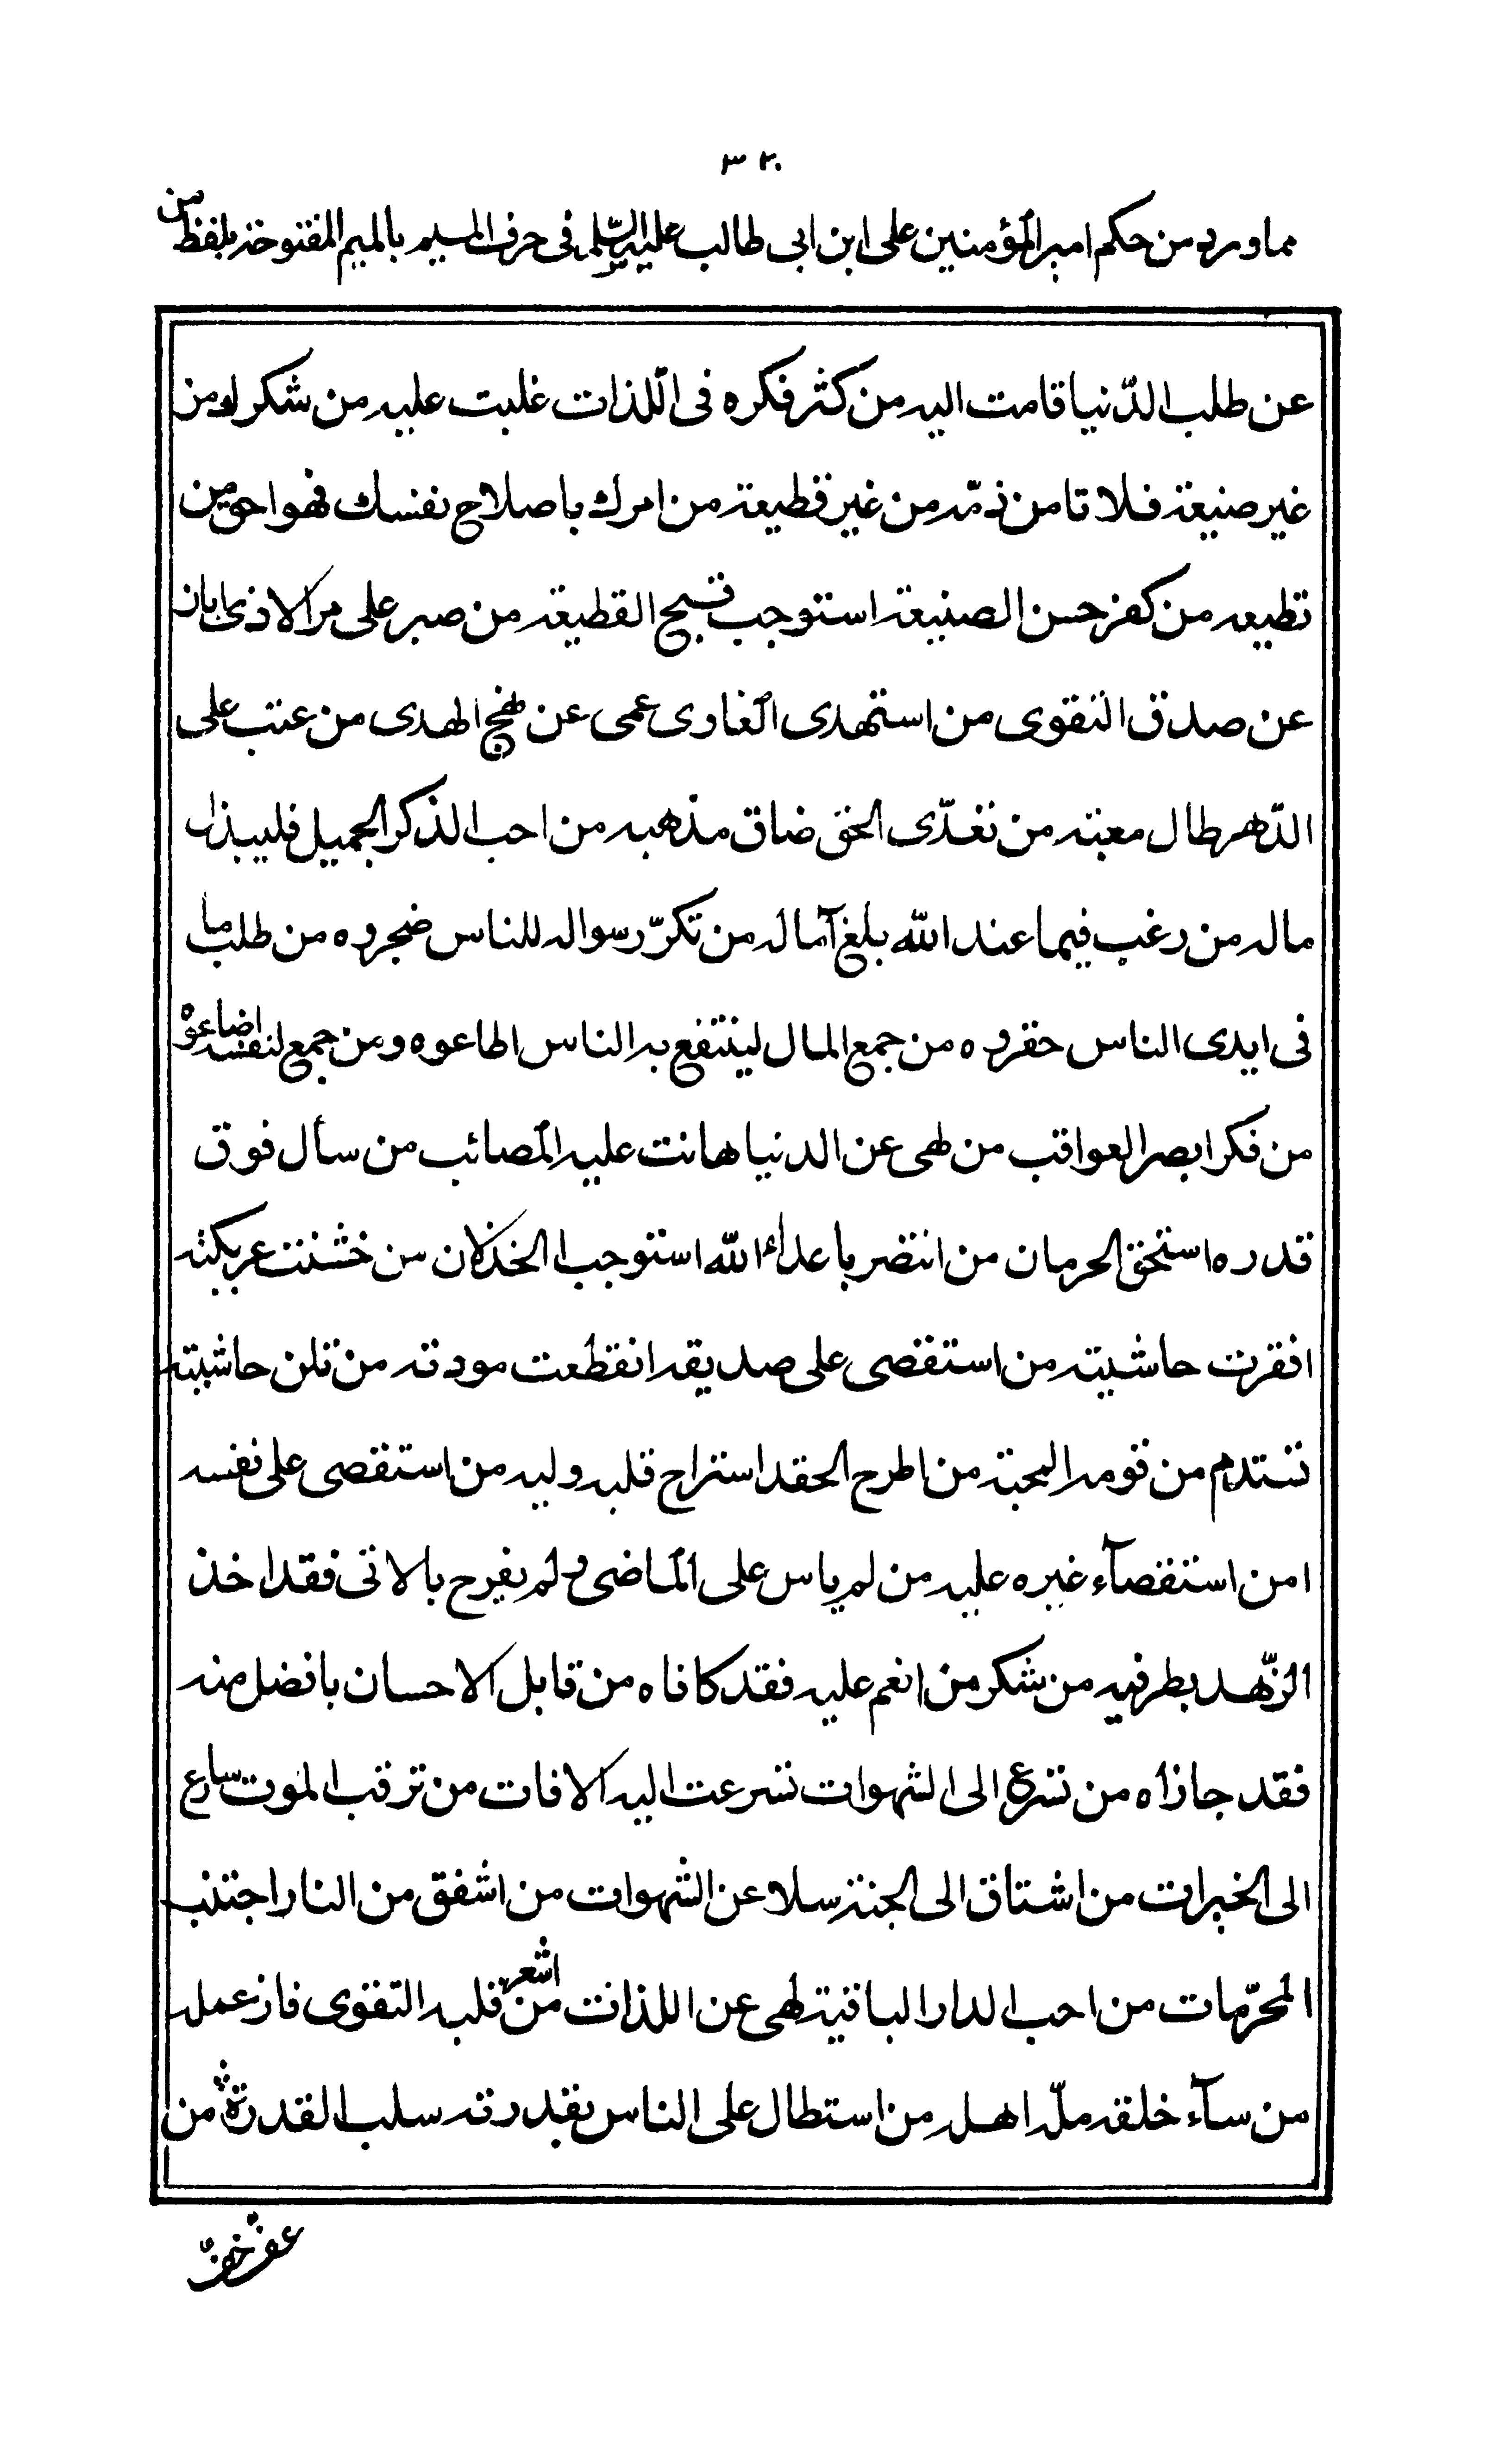 ٣٢٠
مما ورد من حكم امير المؤمنين على ابن ابى طالب عليه السّلم فى حرف الميم بالميم المفتوحة بلفظ من
عن طلب الدّنيا قامت اليه من كثر فكره فى اللّذات غلبت عليه من شكر اليك من
غير صنيعة فلا تامن ذمّه من غير قطيعة من امرك باصلاح نفسك فهو احق من
تطيعه من كفر حسن الصنيعة استوجب قبيح القطيعة من صبر على مر الاذى ابان
عن صدق التقوى من استهدى الغاوى عمى عن نهج الهدى من عتب على
الدّهر طال معتبه من تعدّى الحق ضاق مذهبه من احب الذكر الجميل فليبذل
ماله من رغب فيما عند الله بلغ آماله من تكرّر سواله للناس ضجروه من طلب ما
فى ايدى الناس حقروه من جمع المال لينتفع به الناس اطاعوه ومن جمع لنفسه اضاعوه
من فكر ابصر العواقب من لهى عن الدنيا هانت عليه المصائب من سأل فوق
قدره استحق الحرمان من انتصر باعداء الله استوجب الخذلان من خشنت عريكته
افقرت حاشيته من استقصى على صديقه انقطعت مودته من تلن حاشيته
تستدم من قومه المحبة من اطرح الحقد استراح قلبه ولبه من استقصى على نفسه
امن استقصآء غيره عليه من لم ياس على الماضى ولم يفرح بالاتى فقد اخذ
الزّهد بطرفيه من شكر من انعم عليه فقد كافاه من قابل الاحسان بافضل منه
فقد جازاه من تسرع الى الشهوات تسرعت اليه الافات من ترقب الموت سارع
الى الخيرات من اشتاق الى الجنة سلا عن الشهوات من اشفق من النار اجتنب
المحرّمات من احب الدار الباقية لهى عن اللذات من اشعر قلبه التقوى فاز عمله
من سآء خلقه ملّه اهله من استطال على الناس بقدرته سلب القدرة من